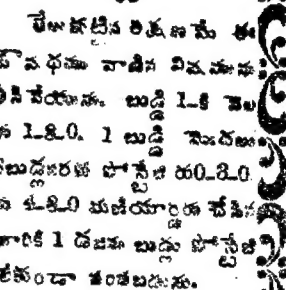 తేలు కుట్టిన తక్షణమే ఈ
ధము వాడిన విషమును
వేయును. బుడ్డి 1-కి వెల
1-8-0. 1 బుడ్డి మొదలు
బుడ్లవరకు పోస్టేజి రు0-8-0
4-8-0 మణియార్డరు చేసిన
వారికి 1 డజను బుడ్లు పోస్టేజి
లేకుండా పంపబడును.